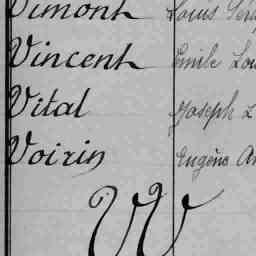 Vimont Louis
Vincent Emile
Vital Joseph L
Voirin Eugène
W